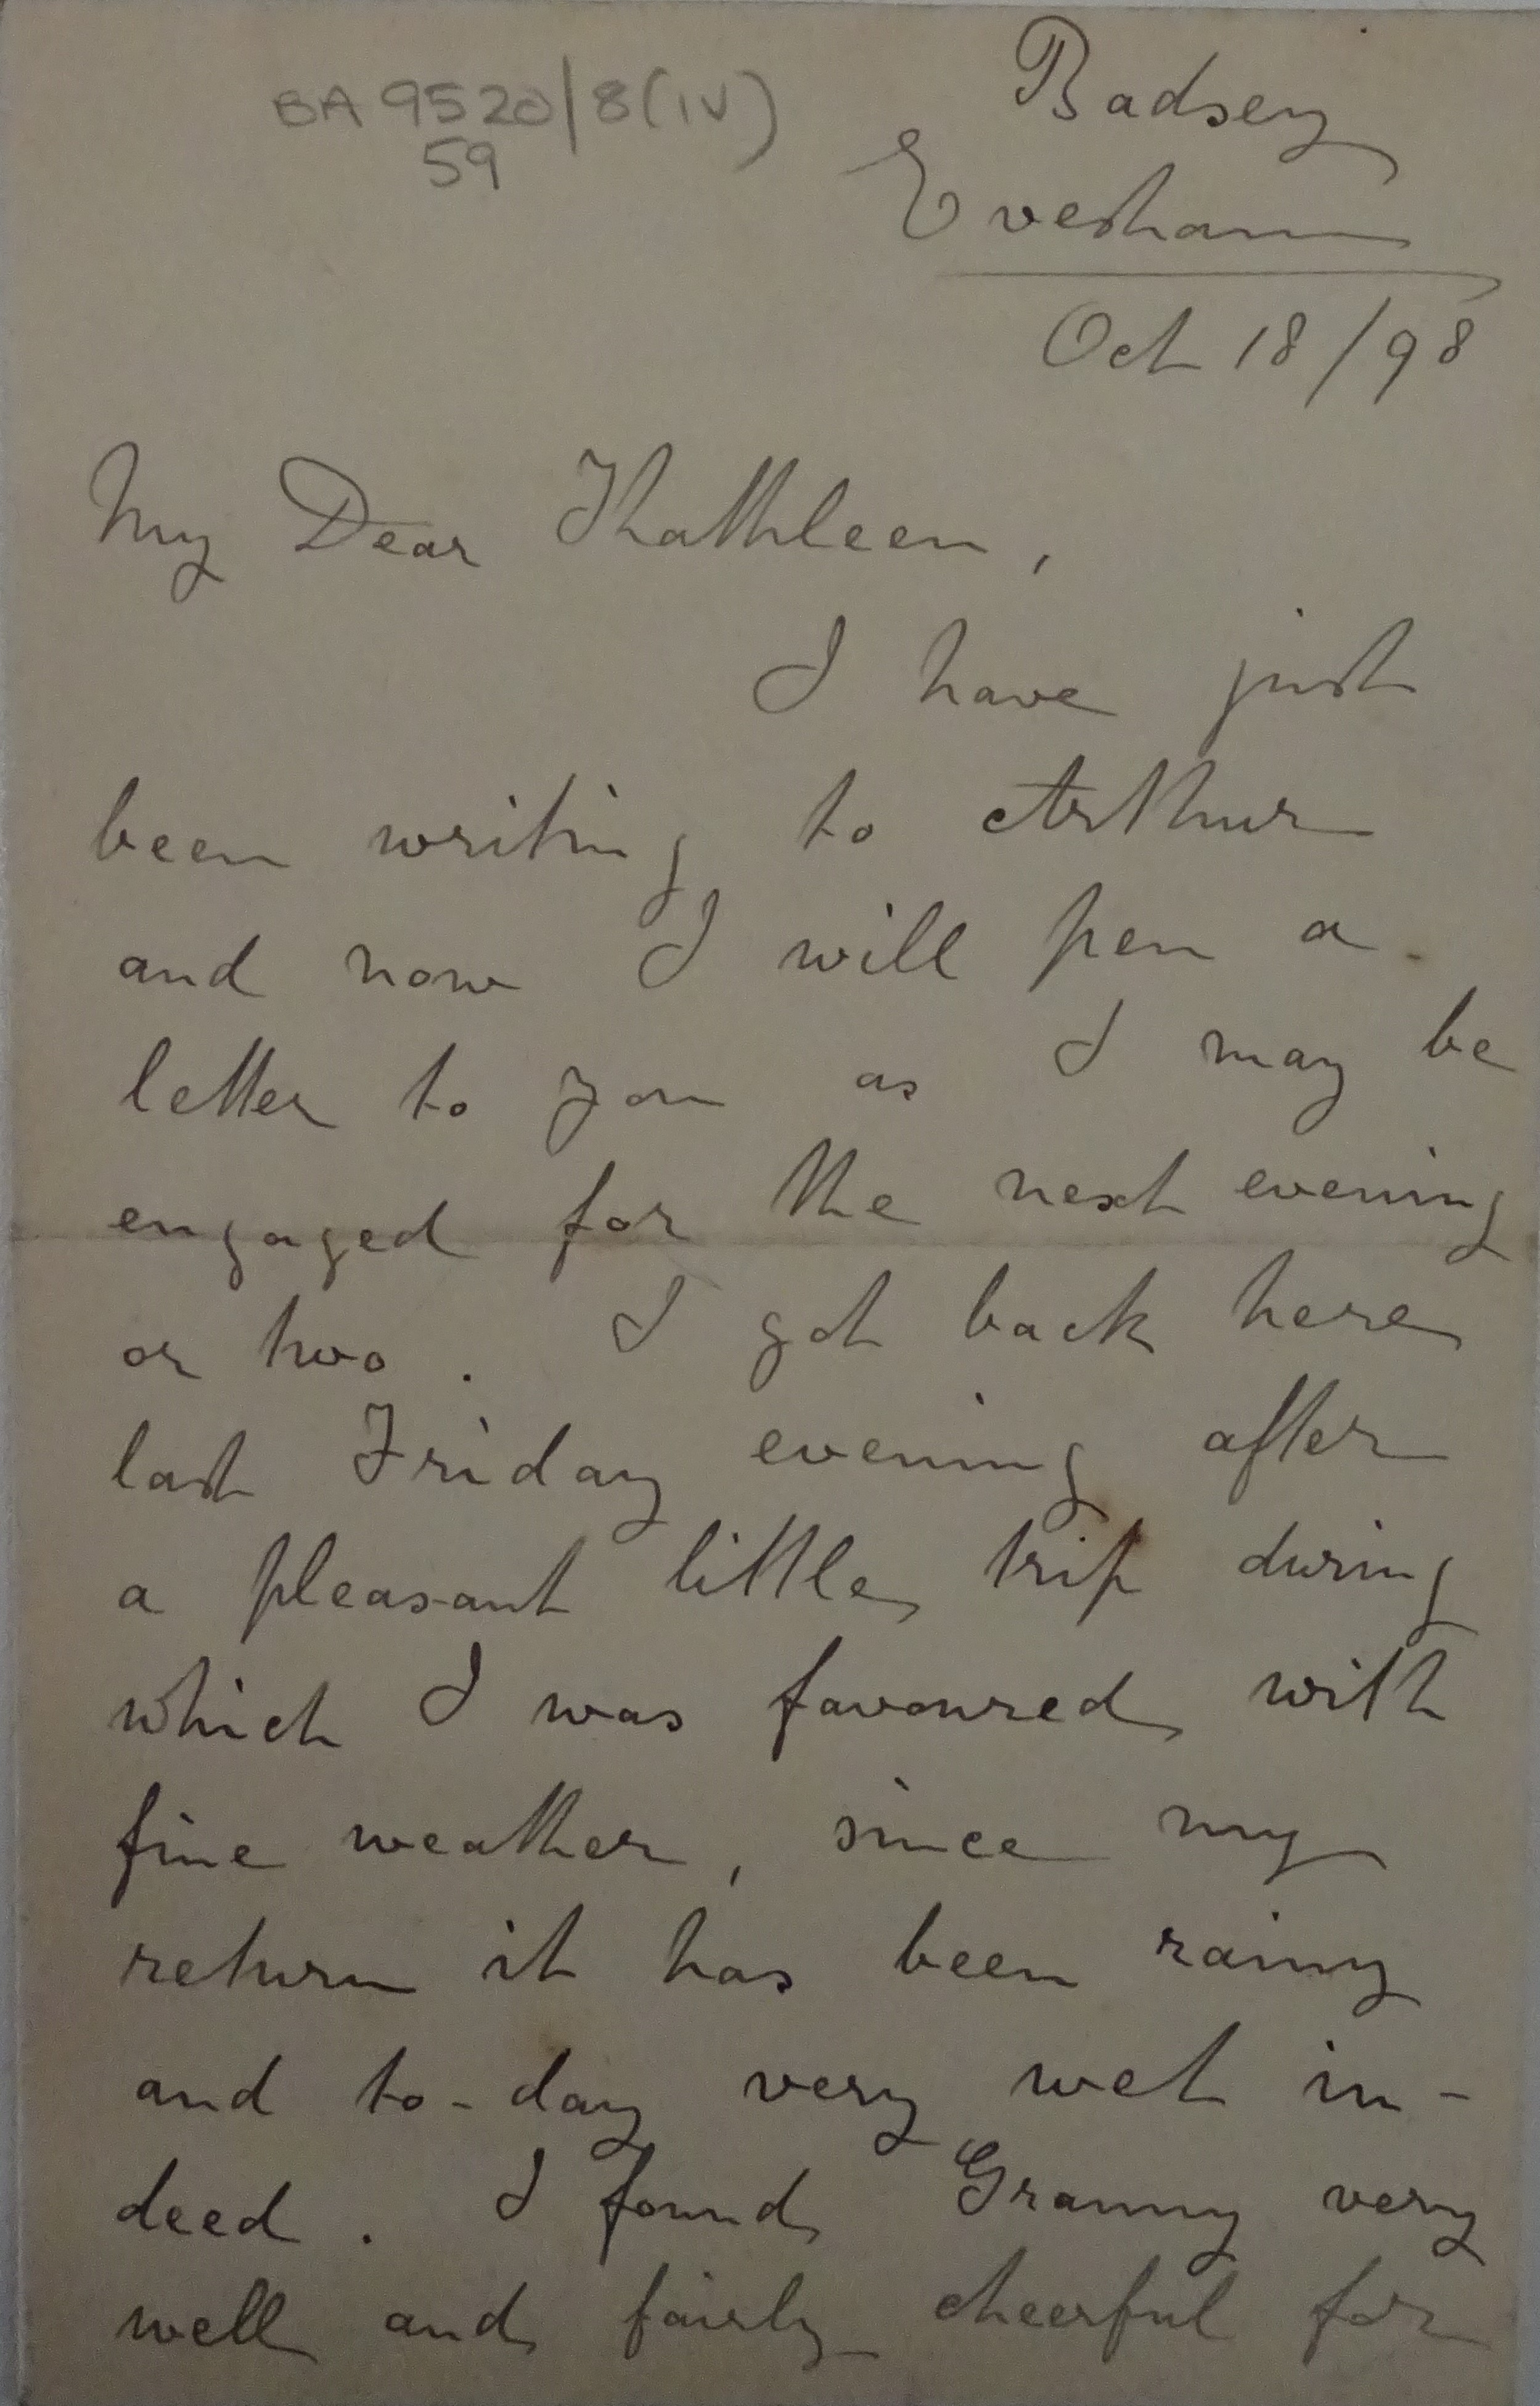 BA 9520/8(IV)
59
Badsey
Evesham
Oct 18/98
My Dear Kathleen,
I have just
been writing to Arthur
and now I will pen a
letter to you as I may be
engaged for the next evening
or two. I got back here
last Friday evening after
a pleasant little trip during
which I was favoured with
fine weather, since my
return it has been rainy
and to-day very wet in-
deed. I found Granny very
well and fairly cheerful for